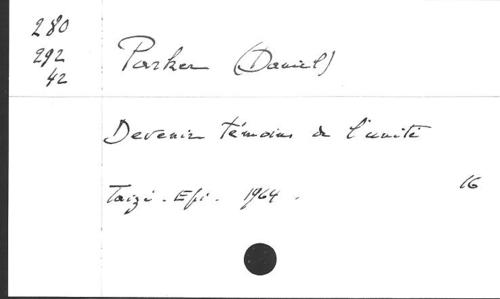 280
292
42
Parker (Daniel)
Devenir témoins de l'unité
Taizé - Epi - 1964.
16